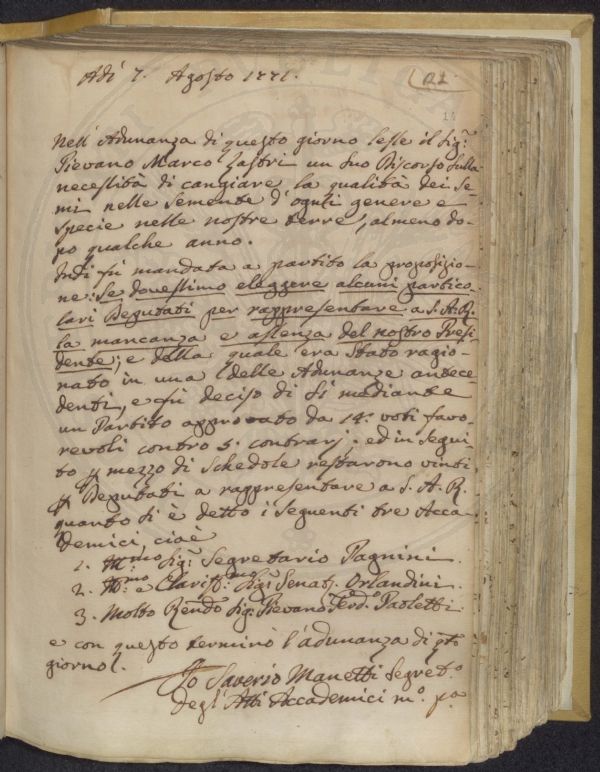 Adì 7. Agosto 1771.
21
Nell' Adunanza di questo giorno lesse il Sig.r
Pievano Marco Lastri un suo Discorso sulla
necessità di cangiare la qualità dei Se-
mi nelle Semente d' ogni genere e
specie nelle nostre terre, almeno do-
po qualche anno.
Indi fù mandata a partito la proposizio-
ne: Se dovessimo eleggere alcuni partico-
lari Deputati per rappresentare a S. A. R.
la mancanza e assenza del nostro Presi-
dente; e della quale era stato ragio-
nato in una delle Adunanze antece-
denti, e fù deciso di sì mediante
un Partito approvato da 14. voti favo-
revoli contro 5. contrarj. ed in segui-
to p mezzo di Schedole restarono vinti
p Deputati a rappresentare a S. A. R.
quanto si è detto i seguenti tre Acca-
demici cioè
1. Sig.r Segretario Pagnini.
2. e Clariss.mo Sig.r Senat.r Orlandini
3. Molto Rendo Sig.r Pievano Ferd.o Paoletti.
e con questo terminò l' adunanza di qto
giorno.
Io Saverio Manetti Segret.o
degl' Atti Accademici m.o p.a